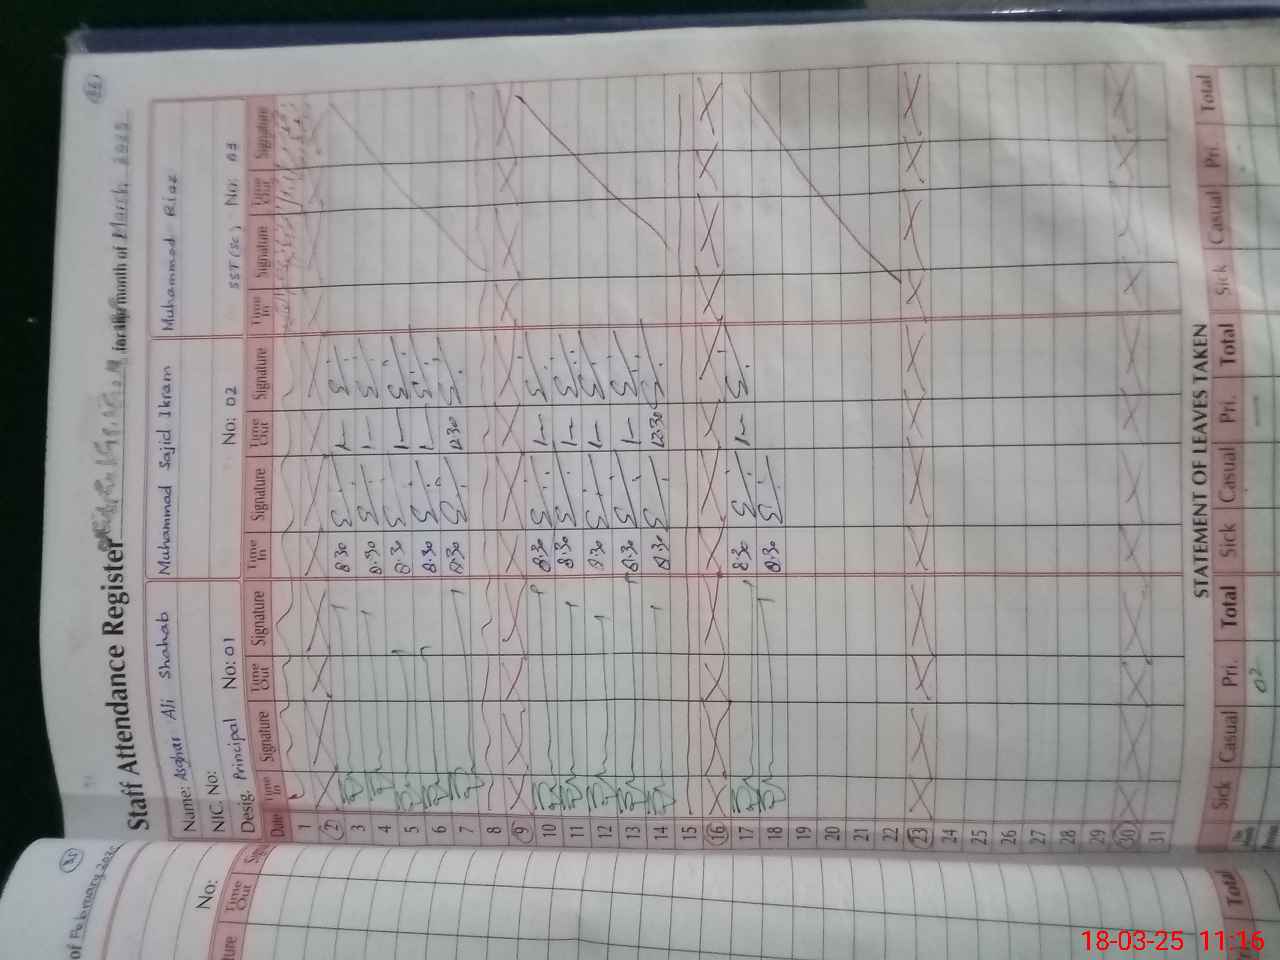 Staff Attendance Register for the month of March, 2025
Name: Asghar Ali Shahab
Muhammad Sajid Ikram
Muhammad Riaz
NIC. No:
Desig. Principal No: 01
No: 02
SST (Sc) No: 03
Date Time In Signature Time Out Signature Time In Signature Time Out Signature Time In Signature Time Out Signature
1
2
3 8:30 1
4 8:30 1
5 8:30 1
6 8:30 1
7 8:30 12:30
8
9
10 8:30 1
11 8:30 1
12 8:30 1
13 8:30 1
14 8:30 12:30
15
16
17 8:30 1
18 8:30
19
20
21
22
23
24
25
26
27
28
29
30
31
STATEMENT OF LEAVES TAKEN
Sick Casual Pri. Total Sick Casual Pri. Total Sick Casual Pri. Total
02
of February 2025
No:
Time Out
Total
18-03-25 11:16